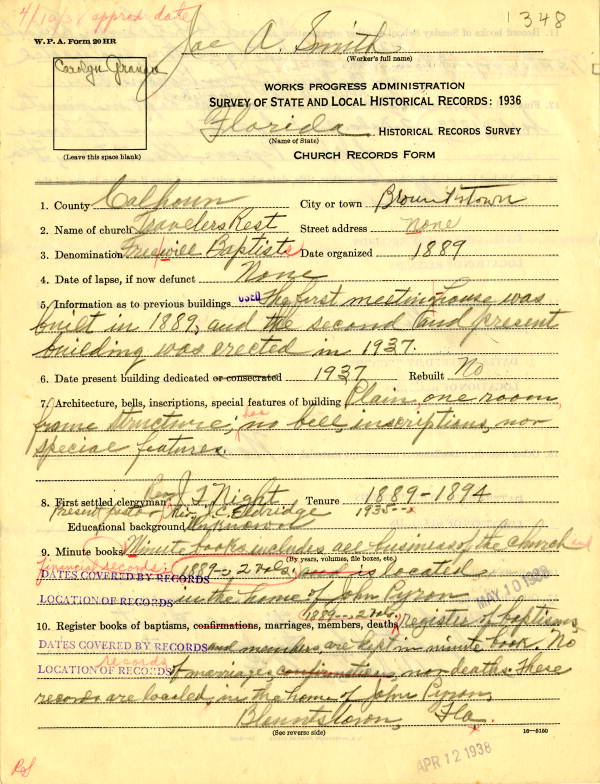 4/10/38 approx date
1348
W. P. A. Form 20 HR
Joe A. Smith
(Worker's full name)
Carolyn
(Leave this space blank)
WORKS PROGRESS ADMINISTRATION
SURVEY OF STATE AND LOCAL HISTORICAL RECORDS: 1936
Florida HISTORICAL RECORDS SURVEY
(Name of State)
CHURCH RECORDS FORM
1. County Calhoun City or town Blountstown
2. Name of church Travelers Rest Street address none
3. Denomination Freewill Baptists Date organized 1889
4. Date of lapse, if now defunct None
5. Information as to previous buildings USED The first meeting house was
built in 1889, and the second and present
building was erected in 1937.
6. Date present building dedicated or consecrated 1937 Rebuilt No
7. Architecture, bells, inscriptions, special features of building Plain, one room,
frame structure; has no bell, inscriptions, nor
special features.
8. First settled clergyman Rev J. T. Night Tenure 1889-1894
Present pastor Rev. J. C. Eldridge 1935--x
Educational background Unknown
9. Minute books Minute books includes all business of the church and
(By years, volumes, file boxes, etc.)
financial records; 1889--, 2 vols; and is located
DATES COVERED BY RECORDS
LOCATION OF RECORDS in the home of John Pyron
MAY 10 1938
1889--, 2 vols.
10. Register books of baptisms, confirmations, marriages, members, deaths, register of baptisms
DATES COVERED BY RECORDS and members are kept in minute book. No
LOCATION OF RECORDS records of marriages, confirmations, nor deaths. These
records are located, in the home of John Pyron,
Blountstown, Fla.
(See reverse side)
16-5150
APR 12 1938